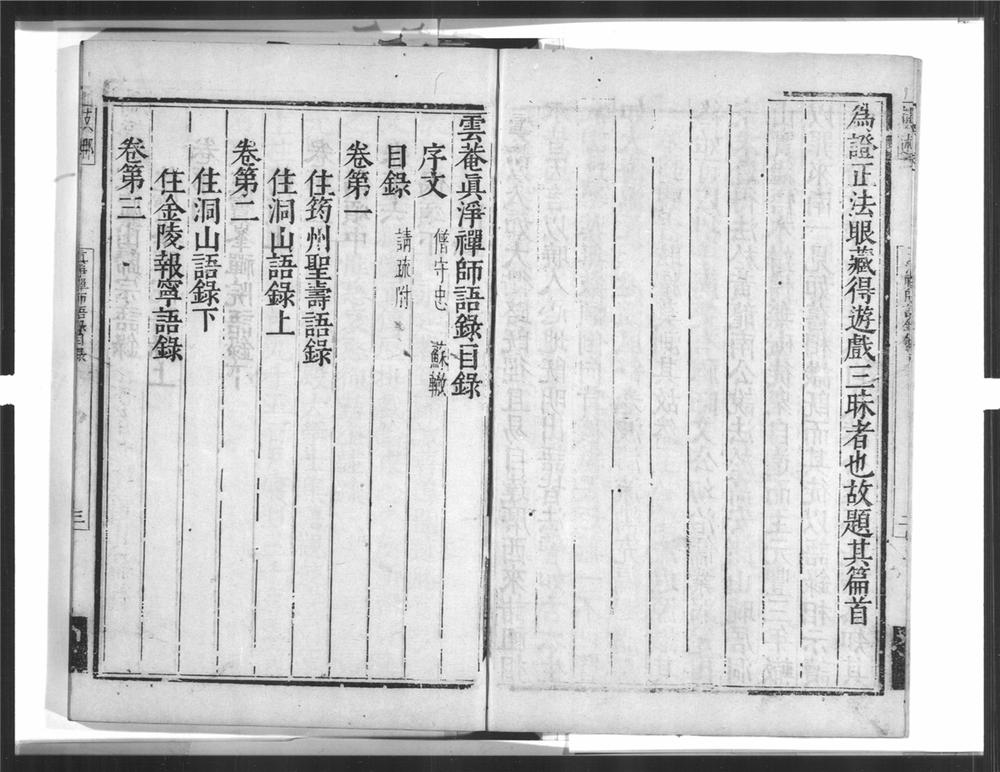 為證正法眼藏得遊戲三昧者也故題其篇首
雲菴眞淨禪師語錄目錄
序文 僧守忠 蘇轍
目錄 請疏附
卷第一
住筠州聖壽語錄
住洞山語錄上
卷第二
住洞山語錄下
住金陵報寧語錄
卷第三